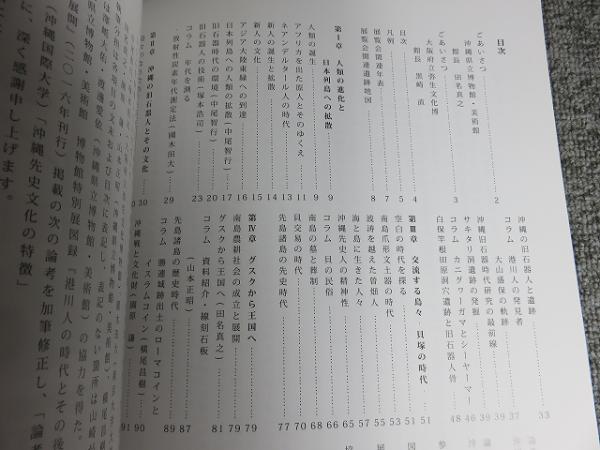 目次
ごあいさつ
沖縄県立博物館・美術館
館長 田名真之 2
ごあいさつ
大阪府立弥生文化博
館長 黒崎 直 3
目次 4
凡例 5
展覧会関連年表 7
展覧会関連遺跡地図 8
第Ⅰ章 人類の進化と
日本列島への拡散 9
人類の誕生 9
アフリカを出た原人とそのゆくえ 11
ネアンデルタール人の時代 13
新人の誕生と拡散 14
新人の文化 15
アジア大陸東縁への到達 16
日本列島への人類の拡散(中尾智行) 17
旧石器時代の環境(中尾智行) 20
旧石器人の技術(塚本浩司) 23
コラム 年代を測る
放射性炭素年代測定法(國木田大) 29
第Ⅱ章 沖縄の旧石器人とその文化 30
沖縄の旧石器人と遺跡 33
コラム 港川人の発見者
大山盛保の軌跡 37
沖縄旧石器時代研究の最前線
サキタリ洞遺跡の発掘 39
コラム カニグヮーガマとシーヤーマー 46
白保竿根田原洞穴遺跡と旧石器人骨 48
第Ⅲ章 交流する島々 貝塚の時代 51
空白の時代を探る 51
南島爪形文土器の時代 53
波濤を越えた曽畑人 55
海と島に生きた人々
沖縄先史人の精神性
コラム 貝の民俗 66
南島の墓と葬制 68
貝交易の時代 70
先島諸島の先史時代 77
第Ⅳ章 グスクから王国へ 79
南島農耕社会の成立と展開 79
グスクから王国へ(田名真之) 81
コラム 資料紹介・線刻石板
(山本正昭) 87
先島諸島の歴史時代 89
コラム 勝連城跡出土のローマコインと
イスラムコイン(横尾昌樹) 90
沖縄戦と文化財(園原 謙) 91
展開』(二〇一六年刊行)掲載の次の論考を加筆修正し、「論考
(沖縄国際大学)「沖縄先史文化の特徴」
に、深く感謝申し上げます。